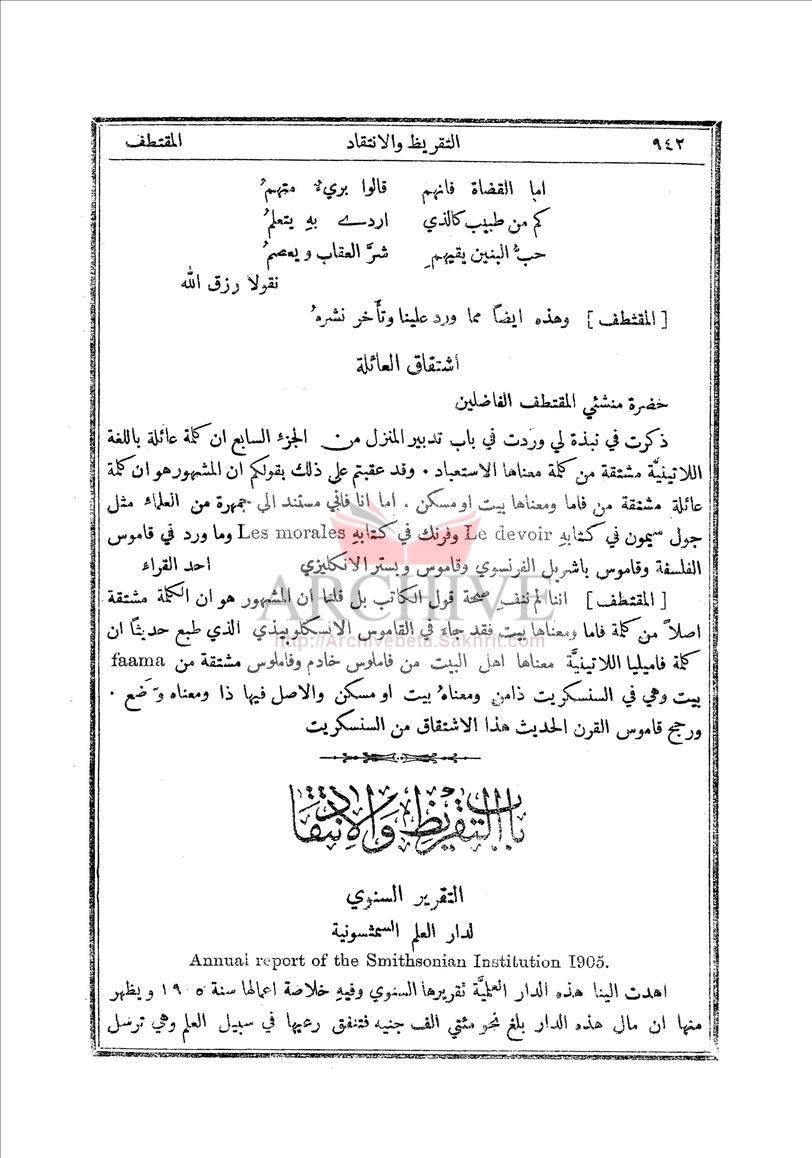 ٩٤٢ التقريظ والانتقاد المقتطف
اما القضاة فانهم قالوا بريءٌ متهمُ
كم من طبيب كالذي اردے بهِ يتعلمُ
حبُّ البنين يقيهمِ شرَّ العقاب ويعصمُ
نقولا رزق الله
[المقتطف] وهذه ايضاً مما ورد علينا وتأخر نشرهُ
اشتقاق العائلة
حضرة منشئي المقتطف الفاضلين
ذكرت في نبذة لي وردت في باب تدبير المنزل من الجزء السابع ان كلمة عائلة باللغة
اللاتينيَّة مشتقة من كلمة معناها الاستعباد . وقد عقبتم على ذلك بقولكم ان المشهور هو ان كلمة
عائلة مشتقة من فاما ومعناها بيت او مسكن . اما انا فاني مستند الى جمهرة من العلماء مثل
جول سيمون في كتابهِ Le devoir وفرنك في كتابهِ Les morales وما ورد في قاموس
الفلسفة وقاموس باشريل الفرنسوي وقاموس وبستر الانكليزي احد القراء
[المقتطف] اننا لم ننفِ صحة قول الكاتب بل قلنا ان المشهور هو ان الكلمة مشتقة
اصلاً من كلمة فاما ومعناها بيت فقد جاء في القاموس الانسكلوبيذي الذي طبع حديثاً ان
كلمة فاميليا اللاتينيَّة معناها اهل البيت من فاملوس خادم وفاملوس مشتقة من faama
بيت وهي في السنسكريت ذامن ومعناهُ بيت او مسكن والاصل فيها ذا ومعناه وَضع .
ورجح قاموس القرن الحديث هذا الاشتقاق من السنسكريت
باب التقريظ والانتقاد
التقرير السنوي
لدار العلم السمثسونية
Annual report of the Smithsonian Institution 1905.
اهدت الينا هذه الدار العلميَّة تقريرها السنوي وفيهِ خلاصة اعمالها سنة ١٩٠٥ ويظهر
منها ان مال هذه الدار بلغ نحو مئتي الف جنيه فتنفق ريعها في سبيل العلم وهي ترسل
ARCHIVE
http://Archivebeta.Sakhrit.com